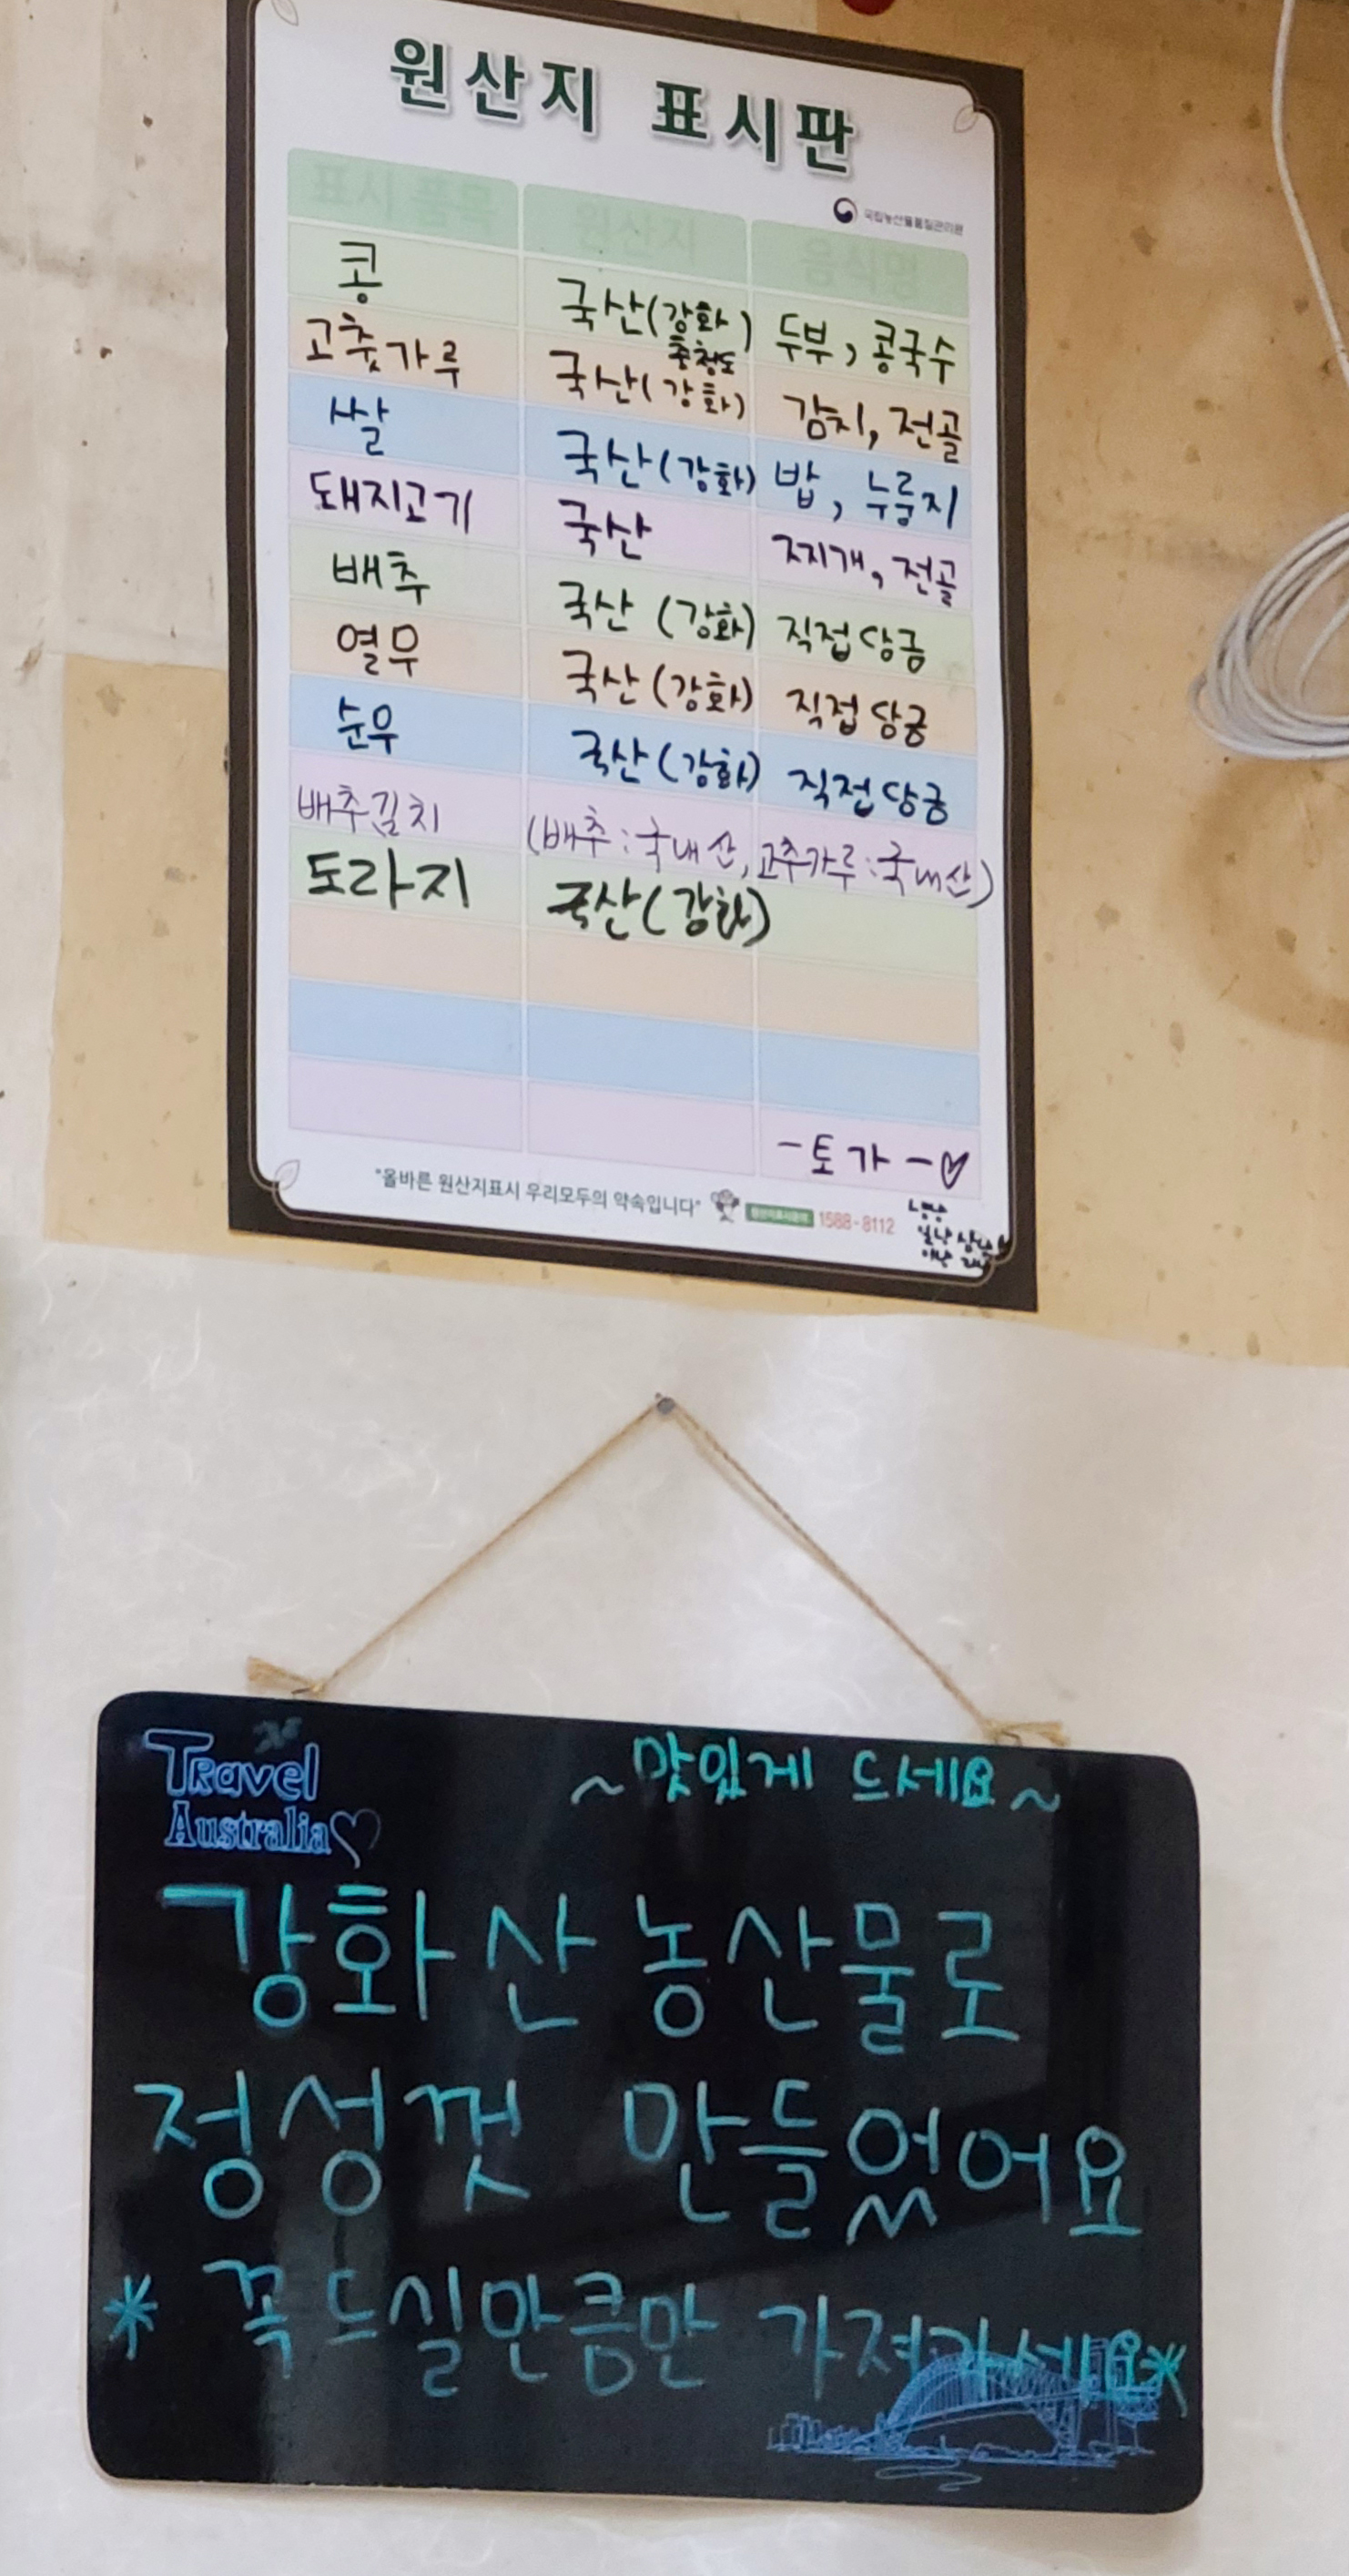 원산지 표시판
국립농산물품질관리원
표시 품목 원산지 음식명
콩 국산(강화) 두부, 콩국수
충청도
고춧가루 국산(강화) 김치, 전골
쌀 국산(강화) 밥, 누룽지
돼지고기 국산 찌개, 전골
배추 국산 (강화) 직접 담금
열무 국산 (강화) 직접 담금
순무 국산 (강화) 직접 담금
배추김치 (배추:국내산, 고추가루:국내산)
도라지 국산(강화)
-토가-♡
"올바른 원산지표시 우리모두의 약속입니다" 1588-8112
Travel
Australia♡
~맛있게 드세요~
강화산 농산물로
정성껏 만들었어요
* 꼭 드실만큼만 가져가세요*